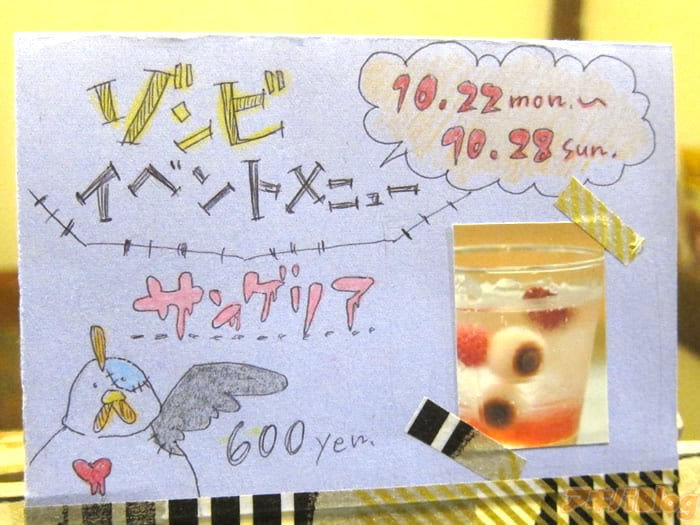 ゾンビ
イベントメニュー
10.22 mon.～
10.28 sun.
サングリア
600 yen.
アキバBlog